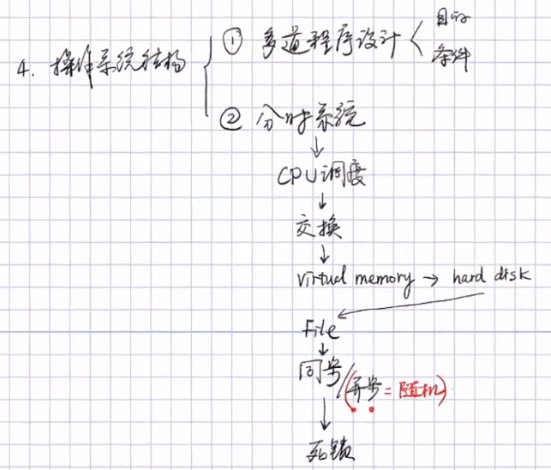 4. 操作系统结构
① 多道程序设计
目的
条件
② 分时系统
CPU调度
交换
virtual memory → hard disk
File
同步/(异步=随机)
死锁